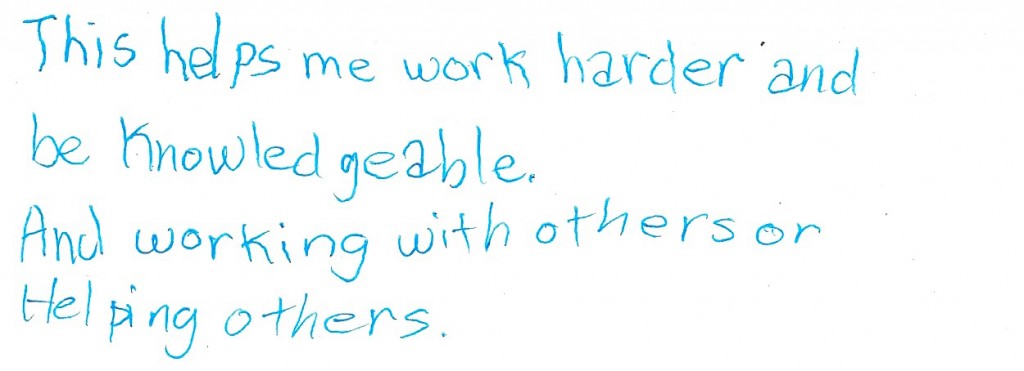 This helps me work harder and
be Knowledgeable.
And working with others or
Helping others.